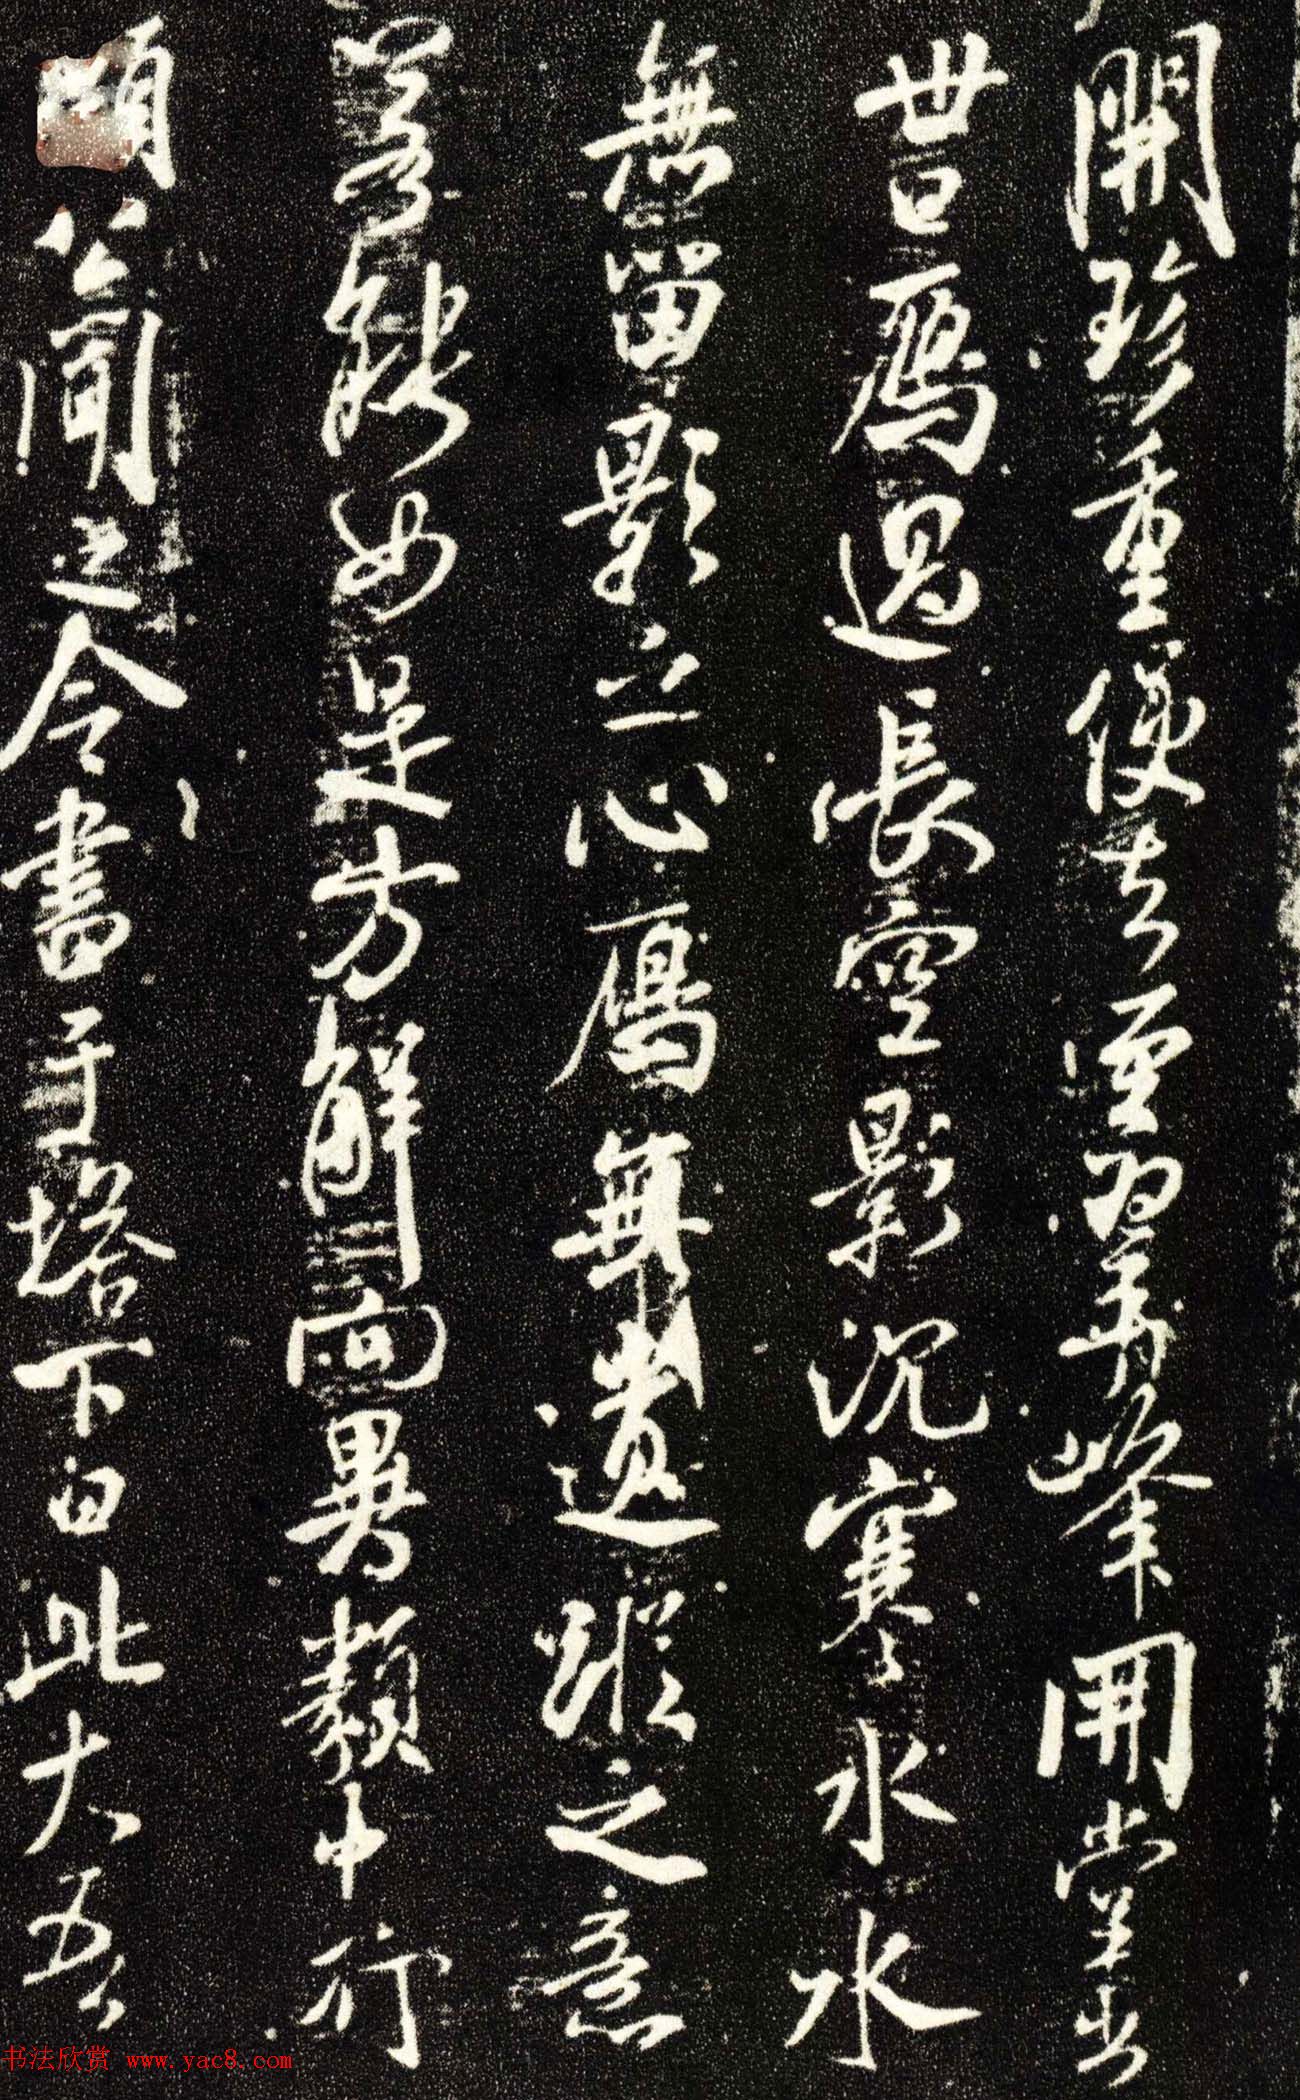 開珍重便去翠峯開堂出
世曰鴈過長空影沉寒水水
無留影之心鴈無遺蹤之意
若能如是方解向異類中行
公聞之令書于塔下曰此大吾
书法欣赏 www.yac8.com